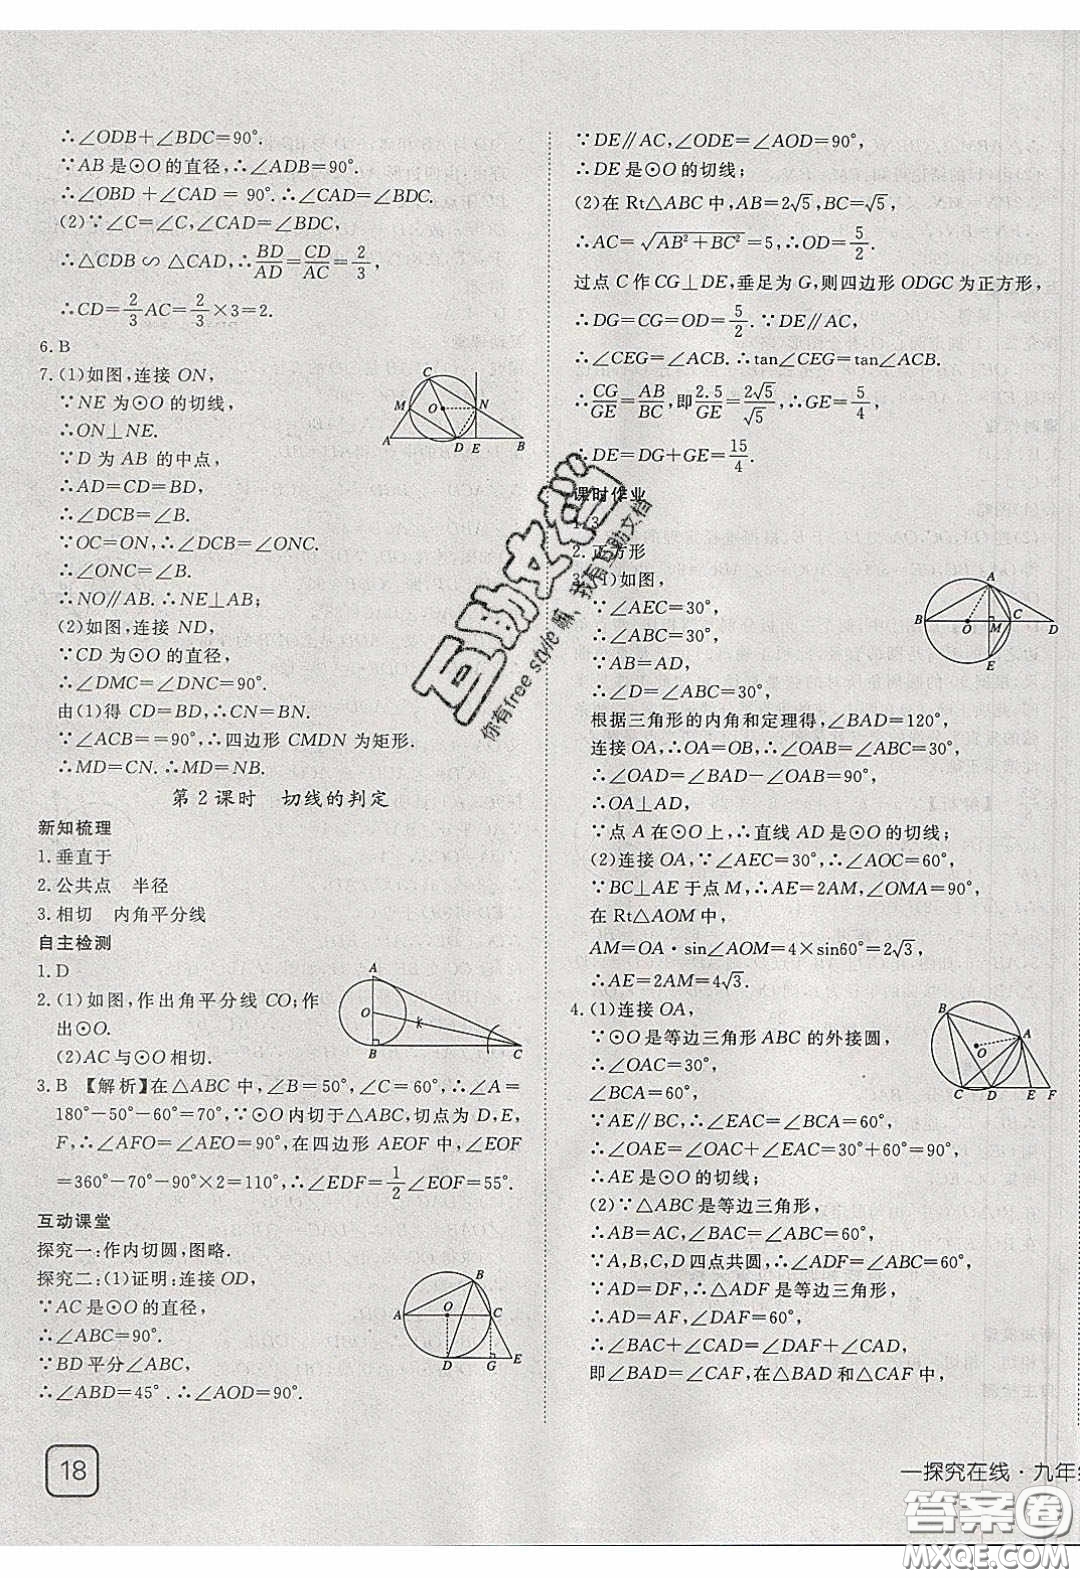 ∴∠ODB+∠BDC=90°.
∵AB是⊙O的直径,∴∠ADB=90°.
∴∠OBD+∠CAD=90°.∴∠CAD=∠BDC.
(2)∵∠C=∠C,∠CAD=∠BDC,
∴△CDB∽△CAD,∴BD/AD=CD/AC=2/3,
∴CD=2/3AC=2/3×3=2.
6.B
7.(1)如图,连接ON,
∵NE为⊙O的切线,
∴ON⊥NE.
∵D为AB的中点,
∴AD=CD=BD,
∴∠DCB=∠B.
∵OC=ON,∴∠DCB=∠ONC.
∴∠ONC=∠B.
∴NO∥AB.∴NE⊥AB;
(2)如图,连接ND,
∵CD为⊙O的直径,
∴∠DMC=∠DNC=90°.
由(1)得CD=BD,∴CN=BN.
∵∠ACB==90°,∴四边形CMDN为矩形.
∴MD=CN.∴MD=NB.
C
M
O
N
A
D
E
B
第2课时 切线的判定
新知梳理
1.垂直于
2.公共点 半径
3.相切 内角平分线
自主检测
1.D
2.(1)如图,作出角平分线CO;作
出⊙O.
(2)AC与⊙O相切.
A
O
B
C
3.B 【解析】在△ABC中,∠B=50°,∠C=60°,∴∠A=
180°-50°-60°=70°,∵⊙O内切于△ABC,切点为D,E,
F,∴∠AFO=∠AEO=90°,在四边形AEOF中,∠EOF
=360°-70°-90°×2=110°,∴∠EDF=1/2∠EOF=55°.
互动课堂
探究一:作内切圆,图略.
探究二:(1)证明:连接OD,
∵AC是⊙O的直径,
∴∠ABC=90°.
∵BD平分∠ABC,
∴∠ABD=45°.∴∠AOD=90°.
B
A
O
C
D
G
E
18
∵DE∥AC,∠ODE=∠AOD=90°.
∴DE是⊙O的切线;
(2)在Rt△ABC中,AB=2√5,BC=√5,
∴AC=√(AB²+BC²)=5,∴OD=5/2.
过点C作CG⊥DE,垂足为G,则四边形ODGC为正方形,
∴DG=CG=OD=5/2.∵DE∥AC,
∴∠CEG=∠ACB.∴tan∠CEG=tan∠ACB.
∴CG/GE=AB/BC,即2.5/GE=2√5/√5,∴GE=5/4,
∴DE=DG+GE=15/4.
课时作业
1.3
2.正方形
3.(1)如图,
∵∠AEC=30°,
∴∠ABC=30°,
∵AB=AD,
∴∠D=∠ABC=30°,
根据三角形的内角和定理得,∠BAD=120°,
连接OA,∴OA=OB,∴∠OAB=∠ABC=30°,
∴∠OAD=∠BAD-∠OAB=90°,
∴OA⊥AD,
∵点A在⊙O上,∴直线AD是⊙O的切线;
(2)连接OA,∵∠AEC=30°,∴∠AOC=60°,
∵BC⊥AE于点M,∴AE=2AM,∠OMA=90°,
在Rt△AOM中,
AM=OA·sin∠AOM=4×sin60°=2√3,
∴AE=2AM=4√3.
A
B
O
M
C
D
E
4.(1)连接OA,
∵⊙O是等边三角形ABC的外接圆,
∴∠OAC=30°,
∠BCA=60°,
∵AE∥BC,∴∠EAC=∠BCA=60°,
∴∠OAE=∠OAC+∠EAC=30°+60°=90°,
∴AE是⊙O的切线;
(2)∵△ABC是等边三角形,
∴AB=AC,∠BAC=∠ABC=60°,
∵A,B,C,D四点共圆,∴∠ADF=∠ABC=60°,
∵AD=DF,∴△ADF是等边三角形,
∴AD=AF,∠DAF=60°,
∴∠BAC+∠CAD=∠DAF+∠CAD,
即∠BAD=∠CAF,在△BAD和△CAF中,
B
A
O
C
D
E
F
一探究在线·九年
互助文档
你有free style嘛,我有互助文档
答案圈
MXQE.COM